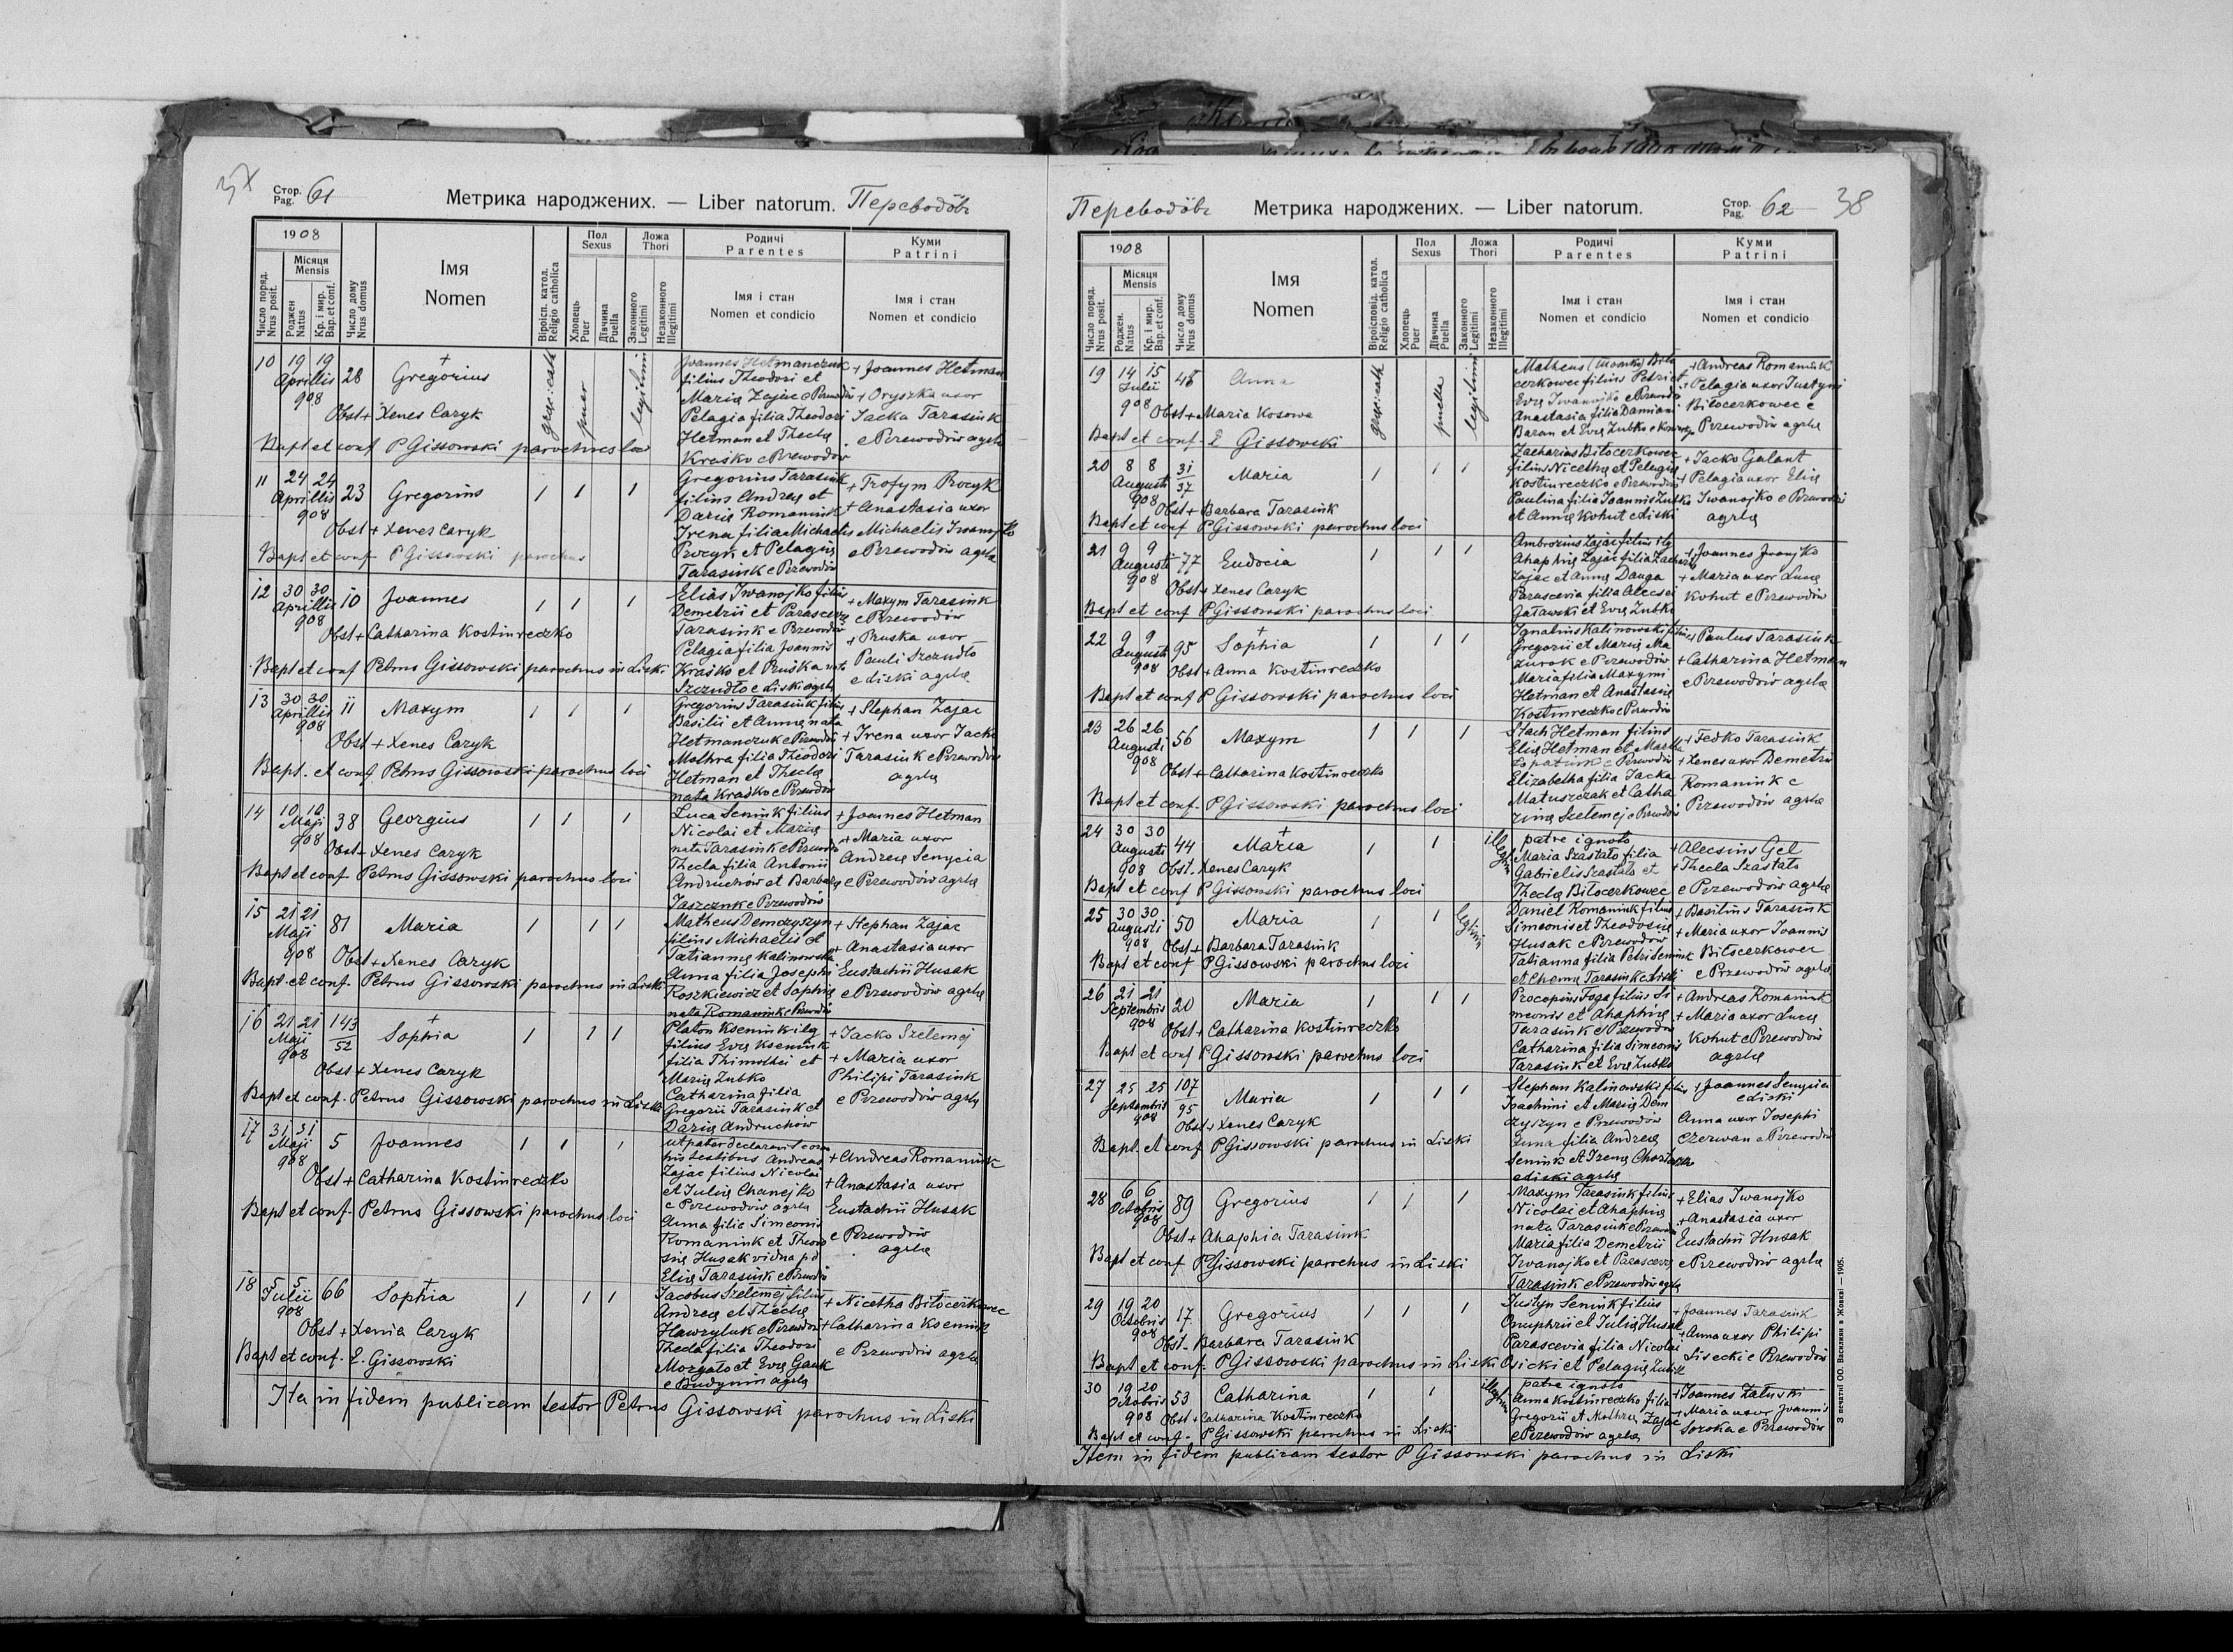 37
Стор. Pag. 61
Метрика народжених. — Liber natorum. Переводôвъ
1908
Число поряд. Nrus posit.
Місяця Mensis
Роджен Natus
Кр. і мир. Bap. et conf.
Число дому Nrus domus
Імя Nomen
Віроісп. катол. Religio catholica
Пол Sexus
Хлопець Puer
Дівчина Puella
Ложа Thori
Законного Legitimi
Незаконного Illegitimi
Родичі Parentes
Імя і стан Nomen et condicio
Куми Patrini
Імя і стан Nomen et condicio
10 19 19 Aprillis 908 28 Gregorius
puer
legitimi
Joannes Hetmanczuk
filius Theodori et
Marię Zając e Przewodów
Pelagia filia Theodori
Hetman et Theclę
Kraśko e Przewodów
+ Joannes Hetman
+ Oryszka uxor
Jacka Tarasiuk
e Przewodów agrlę
Obst + Xenes Caryk
Bapt et conf P Gissowski parochus loci
11 24 24 Aprillis 908 23 Gregorius 1 1 1
Gregorius Tarasiuk
filius Andreę et
Darię Romaniuk
Irena filia Michaelis
Procyk et Pelagię
Tarasiuk e Przewodów
+ Trofym Procyk
+ Anastasia uxor
Michaelis Iwanojko
e Przewodów agrlę
Obst + Xenes Caryk
Bapt et conf P Gissowski parochus
12 30 30 Aprillis 908 10 Joannes 1 1 1
Elias Iwanojko filius
Demetrii et Parascevę
Tarasiuk e Przewodów
Pelagia filia Joannis
Kraśko et Pruśka nata
Szczudło e Liski agrlę
+ Maxym Tarasiuk
e Przewodów
+ Pruska uxor
Pauli Szczudło
e Liski agrlę
Obst + Catharina Kostiureczko
Bapt et conf Petrus Gissowski parochus in Liski
13 30 30 Aprillis 908 11 Maxym 1 1 1
Gregorius Tarasiuk filius
Basilii et Annę nata
Hetmanczuk e Przewodów
Mothra filia Theodori
Hetman et Theclę
nata Kraśko e Przewodów
+ Stephan Zając
+ Irena uxor Jacka
Tarasiuk e Przewodów
agrlę
Obst + Xenes Caryk
Bapt. et conf. Petrus Gissowski parochus loci
14 10 10 Maji 908 38 Georgius 1 1 1
Luca Seniuk filius
Nicolai et Marię
nata Tarasiuk e Przewodów
Thecla filia Antonii
Andruchów et Barbarę
Jaszczuk e Przewodów
+ Joannes Hetman
+ Maria uxor
Andreę Senycia
e Przewodów agrlę
Obst - Xenes Caryk
Bapt et conf Petrus Gissowski parochus loci
15 21 21 Maji 908 81 Maria 1 1 1
Matheus Demczyszyn
filius Michaelis et
Tatiannę Kalinowska
Anna filia Josephi
Roszkiewicz et Sophię
nata Romaniuk e Przewodów
+ Stephan Zając
+ Anastasia uxor
Eustachii Husak
e Przewodów agrlę
Obst + Xenes Caryk
Bapt. et conf. Petrus Gissowski parochus in Liski
16 21 21 Maji 908 143/52 + Sophia 1 1 1
Platon Kseniuk ilg
filius Evę Kseniuk
filia Thimothei et
Marię Zubko
Catharina filia
Gregorii Tarasiuk et
Darię Andruchów
+ Jacko Szelemej
+ Maria uxor
Philipi Tarasiuk
e Przewodów agrlę
Obst + Xenes Caryk
Bapt et conf. Petrus Gissowski parochus in Liski
17 31 31 Maji 908 5 Joannes 1 1 1
ut pater declaravit coram
his testibus Andreas
Zając filius Nicolai
et Julię Chanejko
e Przewodów agrlę
Anna filia Simeonis
Romaniuk et Theodosię
Husak vidua p.d.
Elię Tarasiuk e Przewodów
+ Andreas Romaniuk
+ Anastasia uxor
Eustachii Husak
e Przewodów
agrlę
Obst + Catharina Kostiureczko
Bapt et conf. Petrus Gissowski parochus loci
18 5 5 Julii 908 66 + Sophia 1 1 1
Jacobus Szelemej filius
Andreę et Theclę
Hawryluk e Przewodów
Thecla filia Theodori
Morgało et Evę Gauk
e Budynin agrlę
+ Nicetha Biłocerkowec
+ Catharina Kseniuk
e Przewodów agrlę
Obst + Xenia Caryk
Bapt et conf. E. Gissowski
Ita in fidem publicam testor Petrus Gissowski parochus in Liski
Переводôвъ
Метрика народжених. — Liber natorum.
Стор. Pag. 62
38
1908
Число поряд. Nrus posit.
Місяця Mensis
Роджен. Natus
Кр. і мир. Bap. et conf.
Число дому Nrus domus
Імя Nomen
Віроісповід. катол. Religio catholica
Пол Sexus
Хлопець Puer
Дівчина Puella
Ложа Thori
Законного Legitimi
Незаконного Illegitimi
Родичі Parentes
Імя і стан Nomen et condicio
Куми Patrini
Імя і стан Nomen et condicio
19 14 15 Julii 908 48 Anna
puella
legitimi
Matheus Biłocerkowec filius Petri et
Evę Iwanojko e Przewodów
Anastasia filia Damiani
Baran et Evę Zubko
+ Andreas Romaniuk
+ Pelagia uxor Justyni
Biłocerkowec e
Przewodów agrlę
Obst + Maria Kosowa
Bapt et conf. E Gissowski
20 8 8 Augusti 908 31/37 Maria 1 1 1
Zacharias Biłocerkowec
filius Nicethę et Pelagię
Kostiureczko e Przewodów
Paulina filia Joannis Zubko
et Annę Kohut e Liski
+ Jacko Galant
+ Pelagia uxor Elię
Iwanojko e Przewodów
agrlę
Obst + Barbara Tarasiuk
Bapt et conf P Gissowski parochus loci
21 9 9 Augusti 908 77 Eudocia 1 1 1
Ambrozius Zając filius ilg
Ahaphię Zając filia Zacharię
Zając et Annę Dauga
Parascevia filia Alecsei
Gaławski et Evę Zubko
+ Joannes Iwanojko
+ Maria uxor Lucę
Kohut e Przewodów
Obst + Xenes Caryk
Bapt et conf P Gissowski parochus loci
22 9 9 Augusti 908 95 + Sophia 1 1 1
Ignatius Kalinowski filius
Gregorii et Marię Mazurok e Przewodów
Maria filia Maxymi
Hetman et Anastasię
Kostiureczko e Przewodów
+ Paulus Tarasiuk
+ Catharina Hetman
e Przewodów agrlę
Obst + Anna Kostiureczko
Bapt et conf P Gissowski parochus loci
23 26 26 Augusti 908 56 Maxym 1 1 1
Stach Hetman filius
Elię Hetman et Martha
Łopatiuk e Przewodów
Elizabetha filia Jacka
Matuszczak et Catharinę Szelemej e Przewodów
+ Fedko Tarasiuk
+ Xenes uxor Demetrii
Romaniuk e
Przewodów agrlę
Obst + Catharina Kostiureczko
Bapt et conf. P Gissowski parochus loci
24 30 30 Augusti 908 44 + Maria 1 1 illegitimi
patre ignoto
Maria Szastało filia
Gabrielis Szastało et
Theclę Biłocerkowec
+ Alecsius Gel
+ Thecla Szastało
e Przewodów agrlę
Obst. Xenes Caryk
Bapt et conf P Gissowski parochus loci
25 30 30 Augusti 908 50 Maria 1 1 legitimi
Daniel Romaniuk filius
Simeonis et Theodosię
Husak e Przewodów
Tatianna filia Petri Seniuk
et Chemę Tarasiuk e Liski
+ Basilius Tarasiuk
+ Maria uxor Joannis
Biłocerkowec
e Przewodów agrlę
Obst + Barbara Tarasiuk
Bapt et conf P Gissowski parochus loci
26 21 21 Septembris 908 20 Maria 1 1 1
Procopius Foga filius Simeonis et Ahaphię
Tarasiuk e Przewodów
Catharina filia Simeonis
Tarasiuk et Evę Zubko
+ Andreas Romaniuk
+ Maria uxor Lucę
Kohut e Przewodów
agrlę
Obst + Catharina Kostiureczko
Bapt et conf P Gissowski parochus loci
27 25 25 Septembris 908 107/95 Maria 1 1 1
Stephan Kalinowski filius
Joachimi et Marię Demczyszyn e Przewodów
Anna filia Andreę
Seniuk et Irenę
e Liski agrlę
+ Joannes Senycia
e Liski
Anna uxor Josephi
Czerwan e Przewodów
Obst + Xenes Caryk
Bapt. et conf P Gissowski parochus in Liski
28 6 6 Octobris 908 89 Gregorius 1 1 1
Maxym Tarasiuk filius
Nicolai et Ahaphię
nata Tarasiuk e Przewodów
Maria filia Demetrii
Iwanojko et Parascevę
Tarasiuk e Przewodów agrlę
+ Elias Iwanojko
+ Anastasia uxor
Eustachii Husak
e Przewodów agrlę
Obst + Ahaphia Tarasiuk
Bapt et conf P Gissowski parochus in Liski
29 19 20 Octobris 908 17 Gregorius 1 1 1
Justyn Seniuk filius
Onuphrii et Julię Husak
Parascevia filia Nicolai
Osicki et Pelagię
+ Joannes Tarasiuk
+ Anna uxor Philipi
Lisecki e Przewodów
Obst - Barbara Tarasiuk
Bapt et conf. P Gissowski parochus in Liski
30 19 20 Octobris 908 53 Catharina 1 1 illegitimi
patre ignoto
Anna Kostiureczko filia
Gregorii et Mothrę Zając
e Przewodów agrlę
+ Joannes Załuski
+ Maria uxor Joannis
Soroka e Przewodów
Obst + Catharina Kostiureczko
Bapt et conf. P Gissowski parochus in Liski
Item in fidem publicam testor P Gissowski parochus in Liski
З печатні ОО. Василиян в Жовкві — 1905.